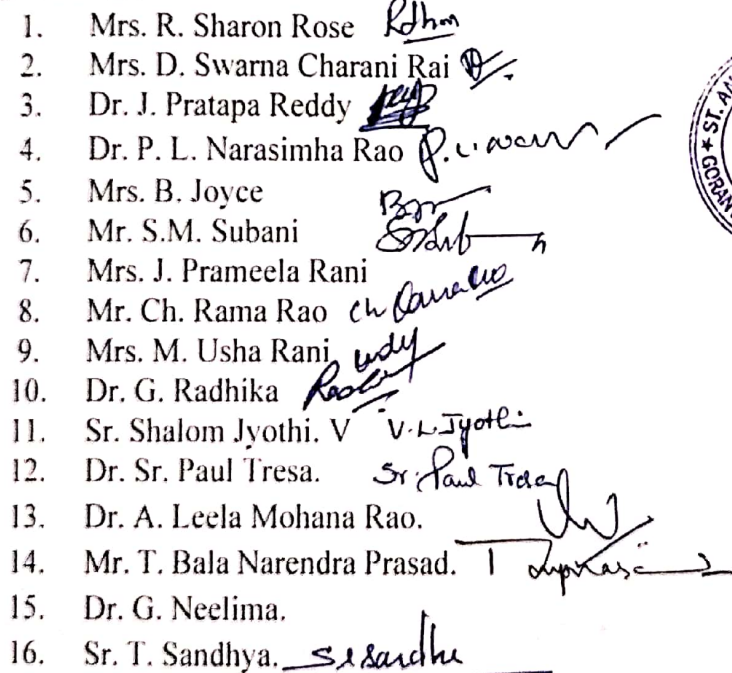 1. Mrs. R. Sharon Rose
2. Mrs. D. Swarna Charani Rai
3. Dr. J. Pratapa Reddy
4. Dr. P. L. Narasimha Rao
5. Mrs. B. Joyce
6. Mr. S.M. Subani
7. Mrs. J. Prameela Rani
8. Mr. Ch. Rama Rao Ch Rama Rao
9. Mrs. M. Usha Rani
10. Dr. G. Radhika
11. Sr. Shalom Jyothi. V V. L Jyothi
12. Dr. Sr. Paul Tresa. Sr. Paul Tresa
13. Dr. A. Leela Mohana Rao.
14. Mr. T. Bala Narendra Prasad.
15. Dr. G. Neelima.
16. Sr. T. Sandhya.
* ST.